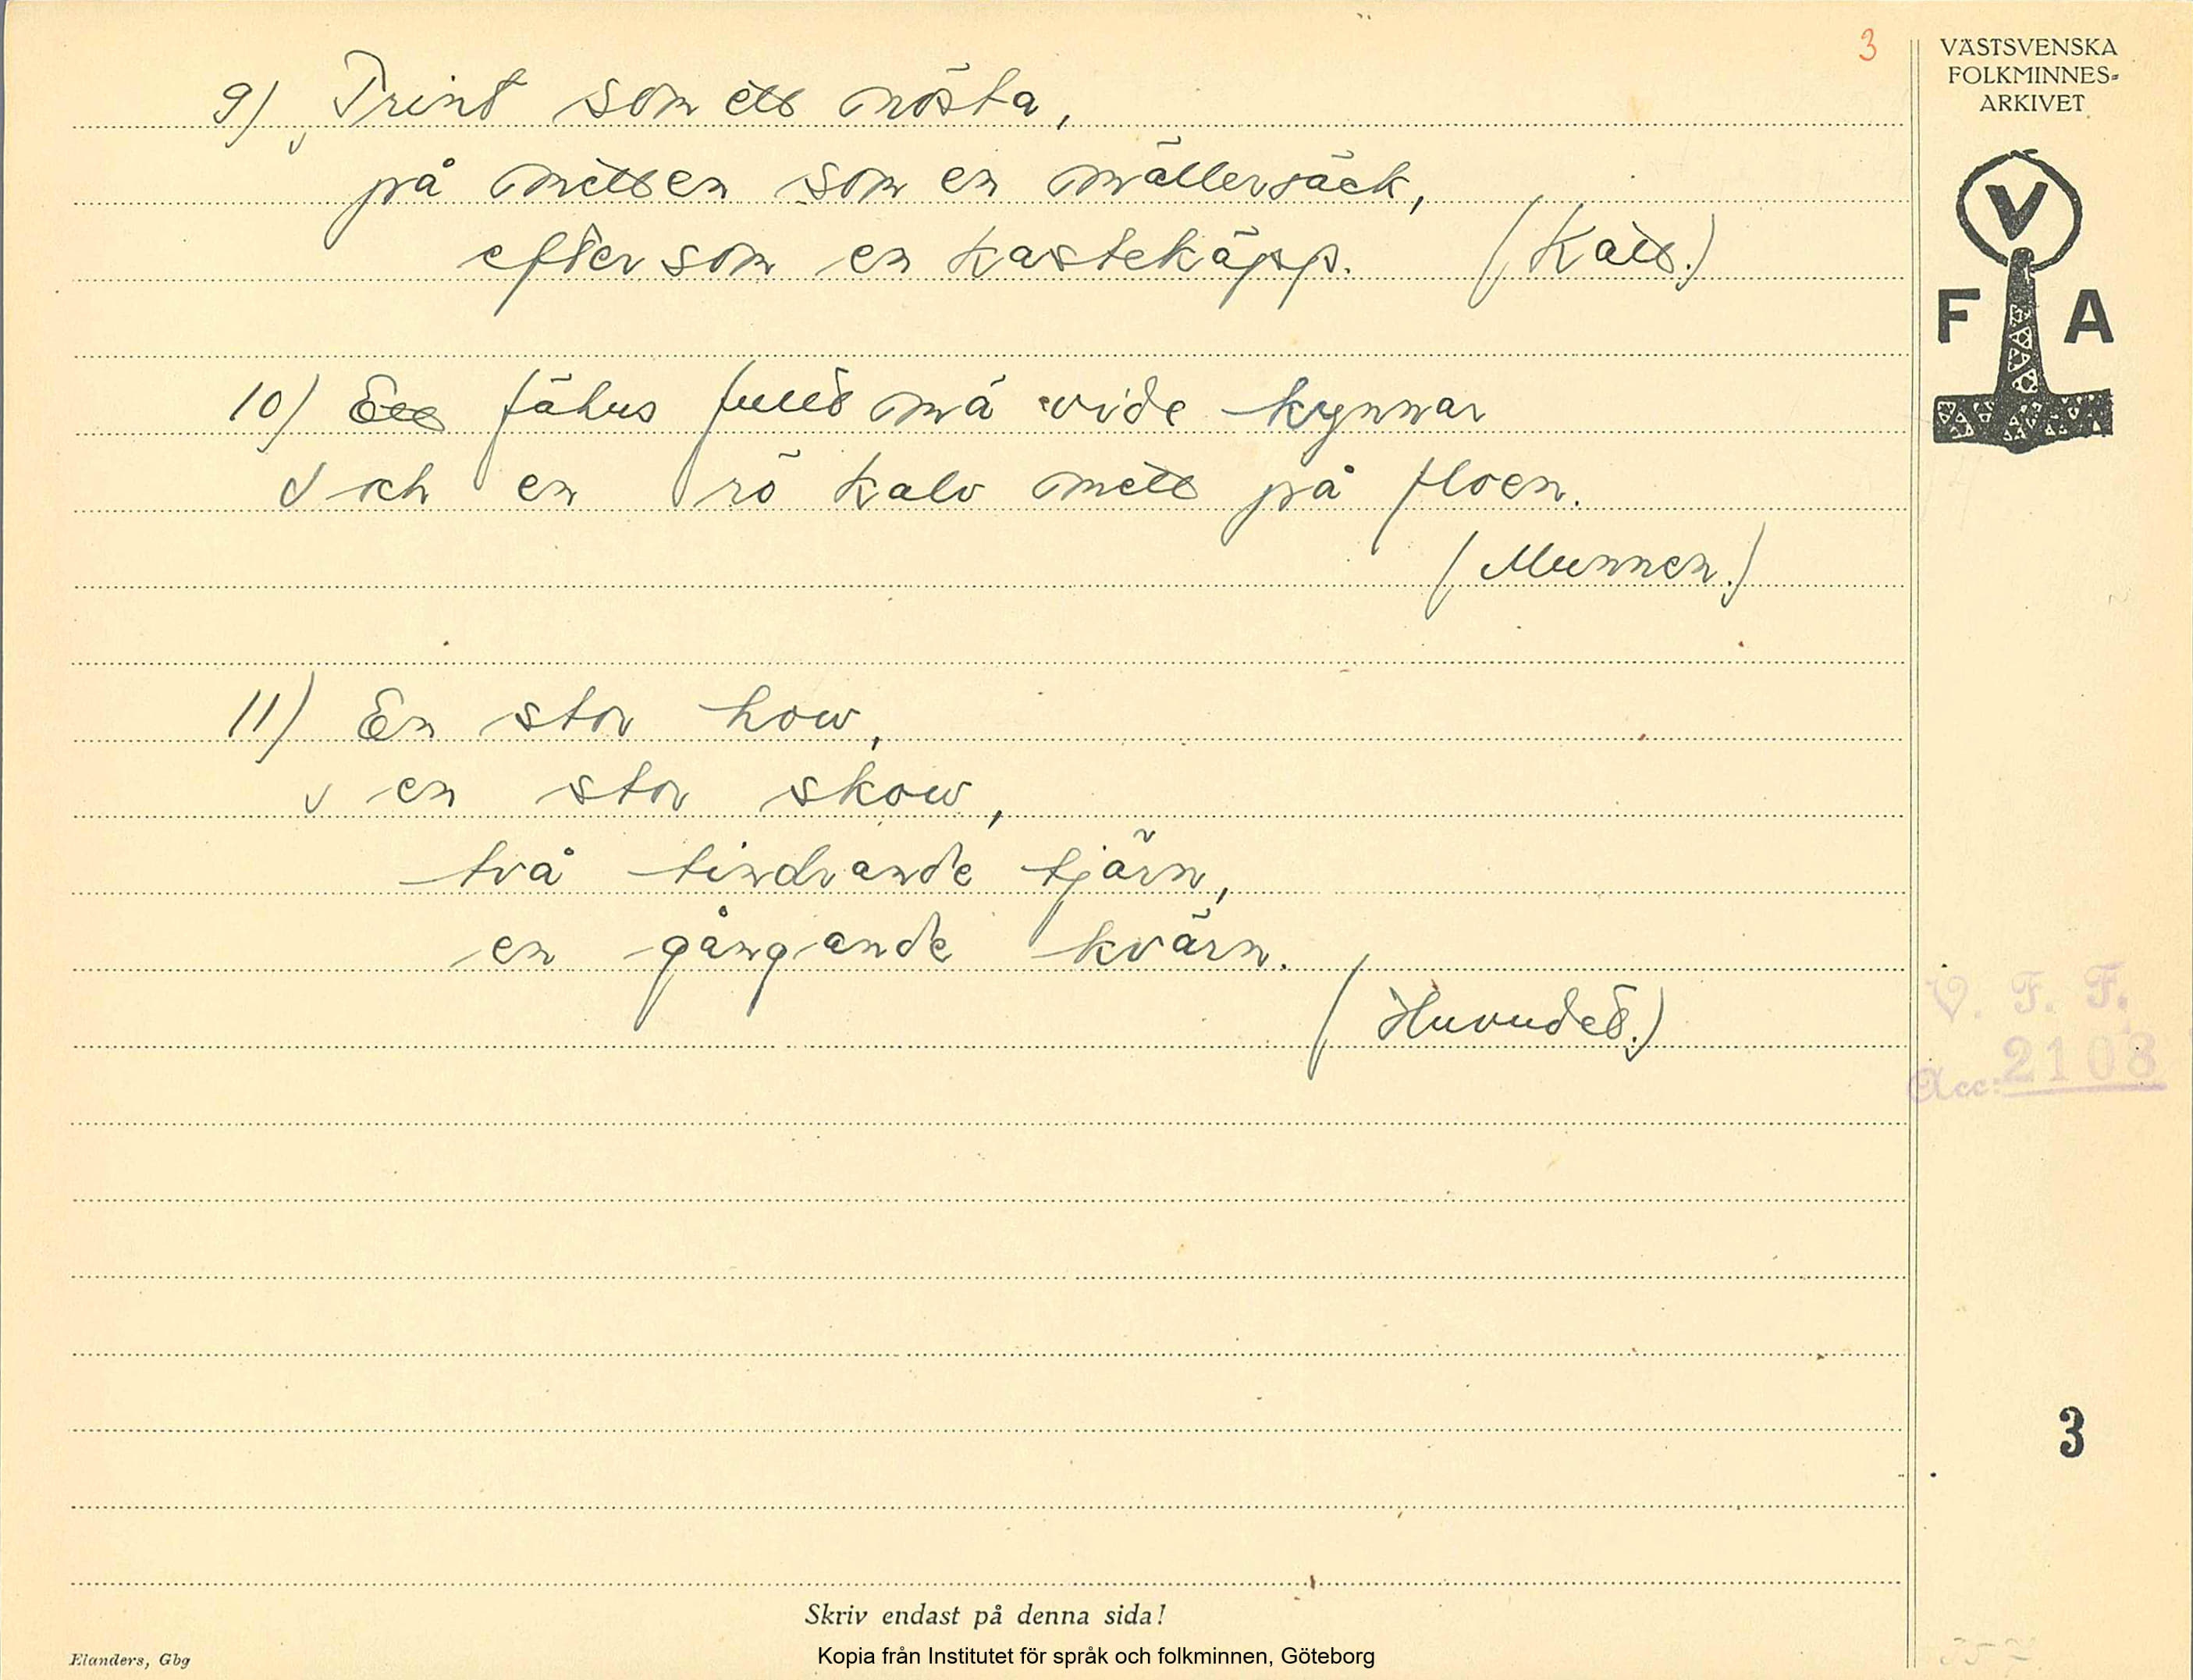 3
VÄSTSVENSKA
FOLKMINNES-
ARKIVET
V
F A
9) Trint som ett nösta,
på mitten som en mällersäck,
efter som en kastekäpp. (Katt.)
10) Ett fähus fullt mä vide kynnar
och en rö kalv mitt på floen.
(Munnen.)
11) En stor how,
en stor skow,
två tindrande tjärn,
en gångande kvärn.
(Huvudet.)
V. F. F.
Acc: 2103
3
Skriv endast på denna sida!
Elanders, Gbg
Kopia från Institutet för språk och folkminnen, Göteborg